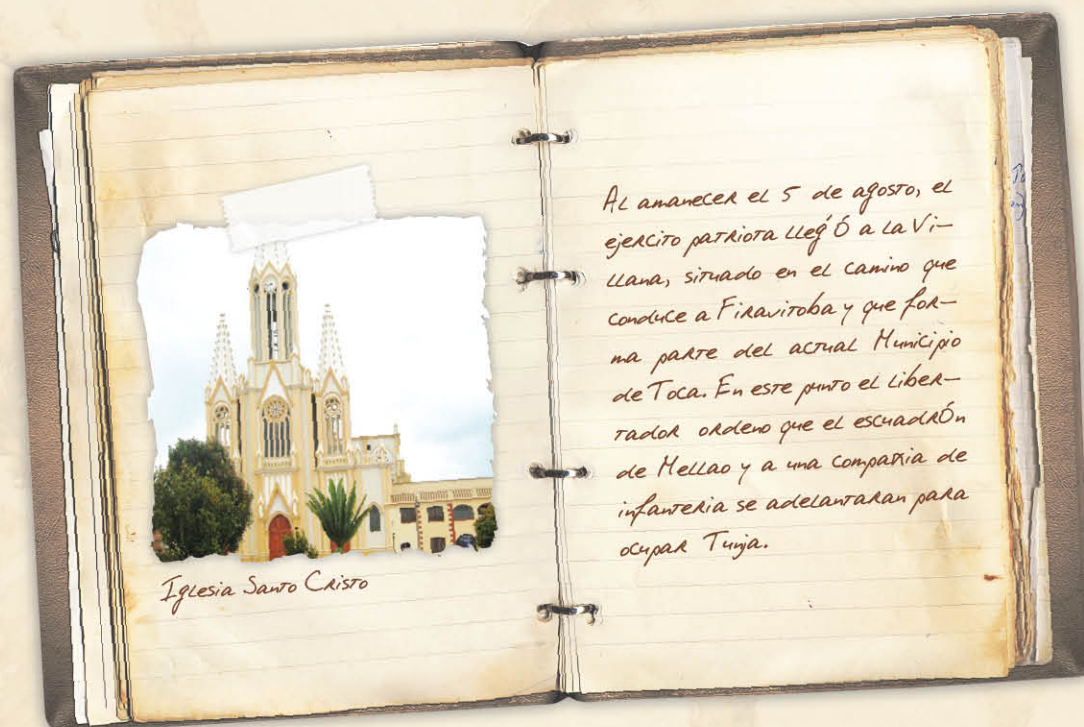 Iglesia Santo Cristo
Al amanecer el 5 de agosto, el
ejercito patriota llegÓ a la Vi-
llana, situado en el camino que
conduce a Firavitoba y que for-
ma parte del actual Municipio
de Toca. En este punto el liber-
tador ordeno que el escuadrÓn
de Mellao y a una compañia de
infanteria se adelantaran para
ocupar Tunja.